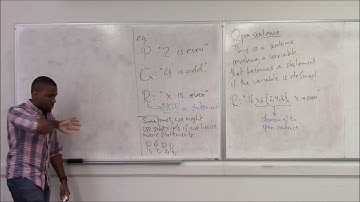 e.g.
P: "2 is even"
Q: "4 is odd"
R: "x is even"
a statement
Sometimes we might
use subscripts if we have
many statements
P₁ P₂ P₃ P₄
Open sentence
This is a sentence
involving a variable
that becomes a statement
if the variable is defined.
R: "If x ∈ {2,4,6}, x is even"
domain of the
open sentence